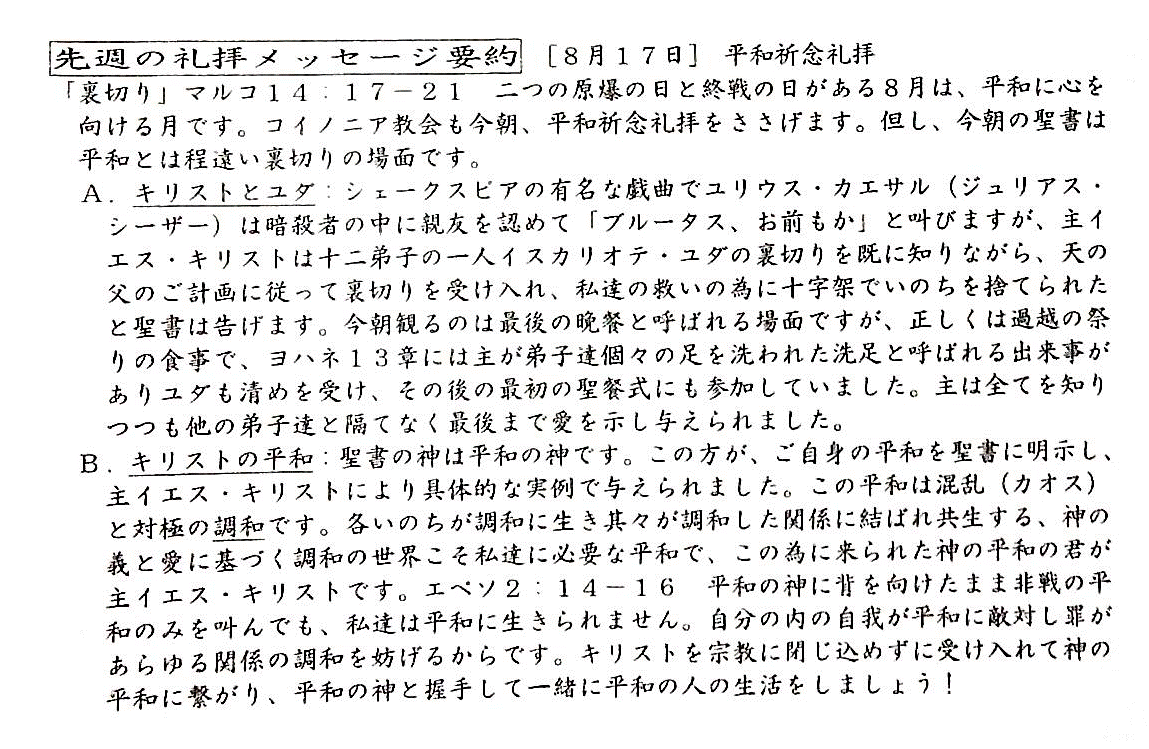 先週の礼拝メッセージ要約 [8月17日] 平和祈念礼拝
「裏切り」マルコ14:17-21 二つの原爆の日と終戦の日がある8月は、平和に心を
向ける月です。コイノニア教会も今朝、平和祈念礼拝をささげます。但し、今朝の聖書は
平和とは程遠い裏切りの場面です。
A.キリストとユダ:シェークスピアの有名な戯曲でユリウス・カエサル(ジュリアス・
シーザー)は暗殺者の中に親友を認めて「ブルータス、お前もか」と叫びますが、主イ
エス・キリストは十二弟子の一人イスカリオテ・ユダの裏切りを既に知りながら、天の
父のご計画に従って裏切りを受け入れ、私達の救いの為に十字架でいのちを捨てられた
と聖書は告げます。今朝観るのは最後の晩餐と呼ばれる場面ですが、正しくは過越の祭
りの食事で、ヨハネ13章には主が弟子達個々の足を洗われた洗足と呼ばれる出来事が
ありユダも清めを受け、その後の最初の聖餐式にも参加していました。主は全てを知り
つつも他の弟子達と隔てなく最後まで愛を示し与えられました。
B.キリストの平和:聖書の神は平和の神です。この方が、ご自身の平和を聖書に明示し、
主イエス・キリストにより具体的な実例で与えられました。この平和は混乱(カオス)
と対極の調和です。各いのちが調和に生き其々が調和した関係に結ばれ共生する、神の
義と愛に基づく調和の世界こそ私達に必要な平和で、この為に来られた神の平和の君が
主イエス・キリストです。エペソ2:14-16 平和の神に背を向けたまま非戦の平
和のみを叫んでも、私達は平和に生きられません。自分の内の自我が平和に敵対し罪が
あらゆる関係の調和を妨げるからです。キリストを宗教に閉じ込めずに受け入れて神の
平和に繋がり、平和の神と握手して一緒に平和の人の生活をしましょう!